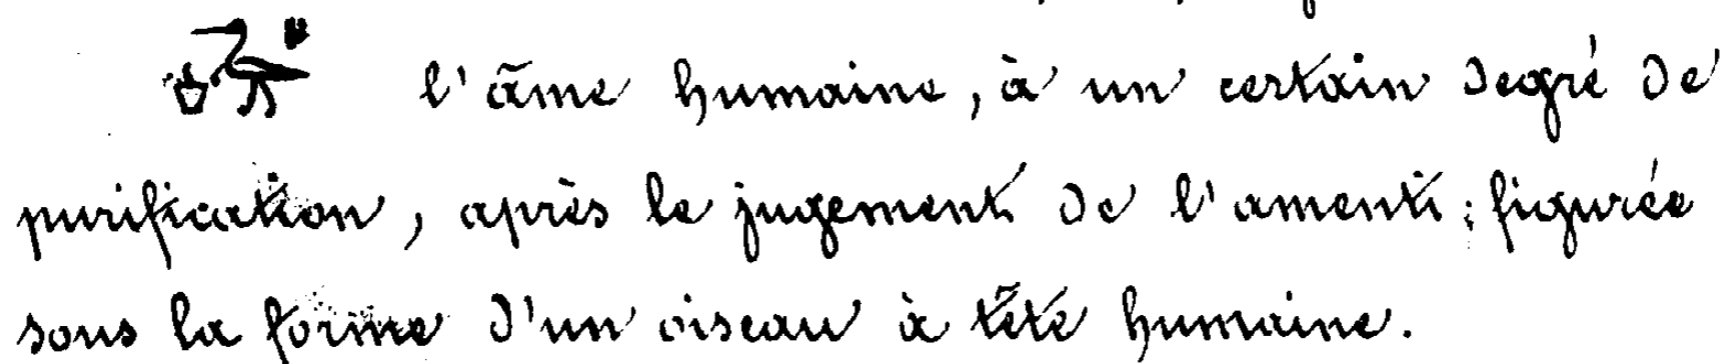 l'âme humaine, à un certain degré de
purification, après le jugement de l'amenti; figurée
sous la forme d'un oiseau à tête humaine.